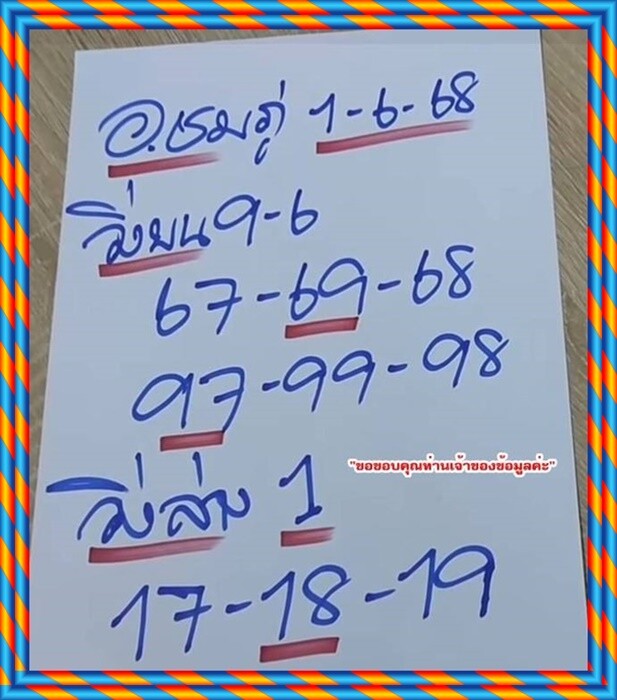 อ.ชมภู่ 1-6-68
วิ่งบน 9-6
67-69-68
97-99-98
"ขอขอบคุณท่านเจ้าของข้อมูลค่ะ"
วิ่งล่าง 1
17-18-19